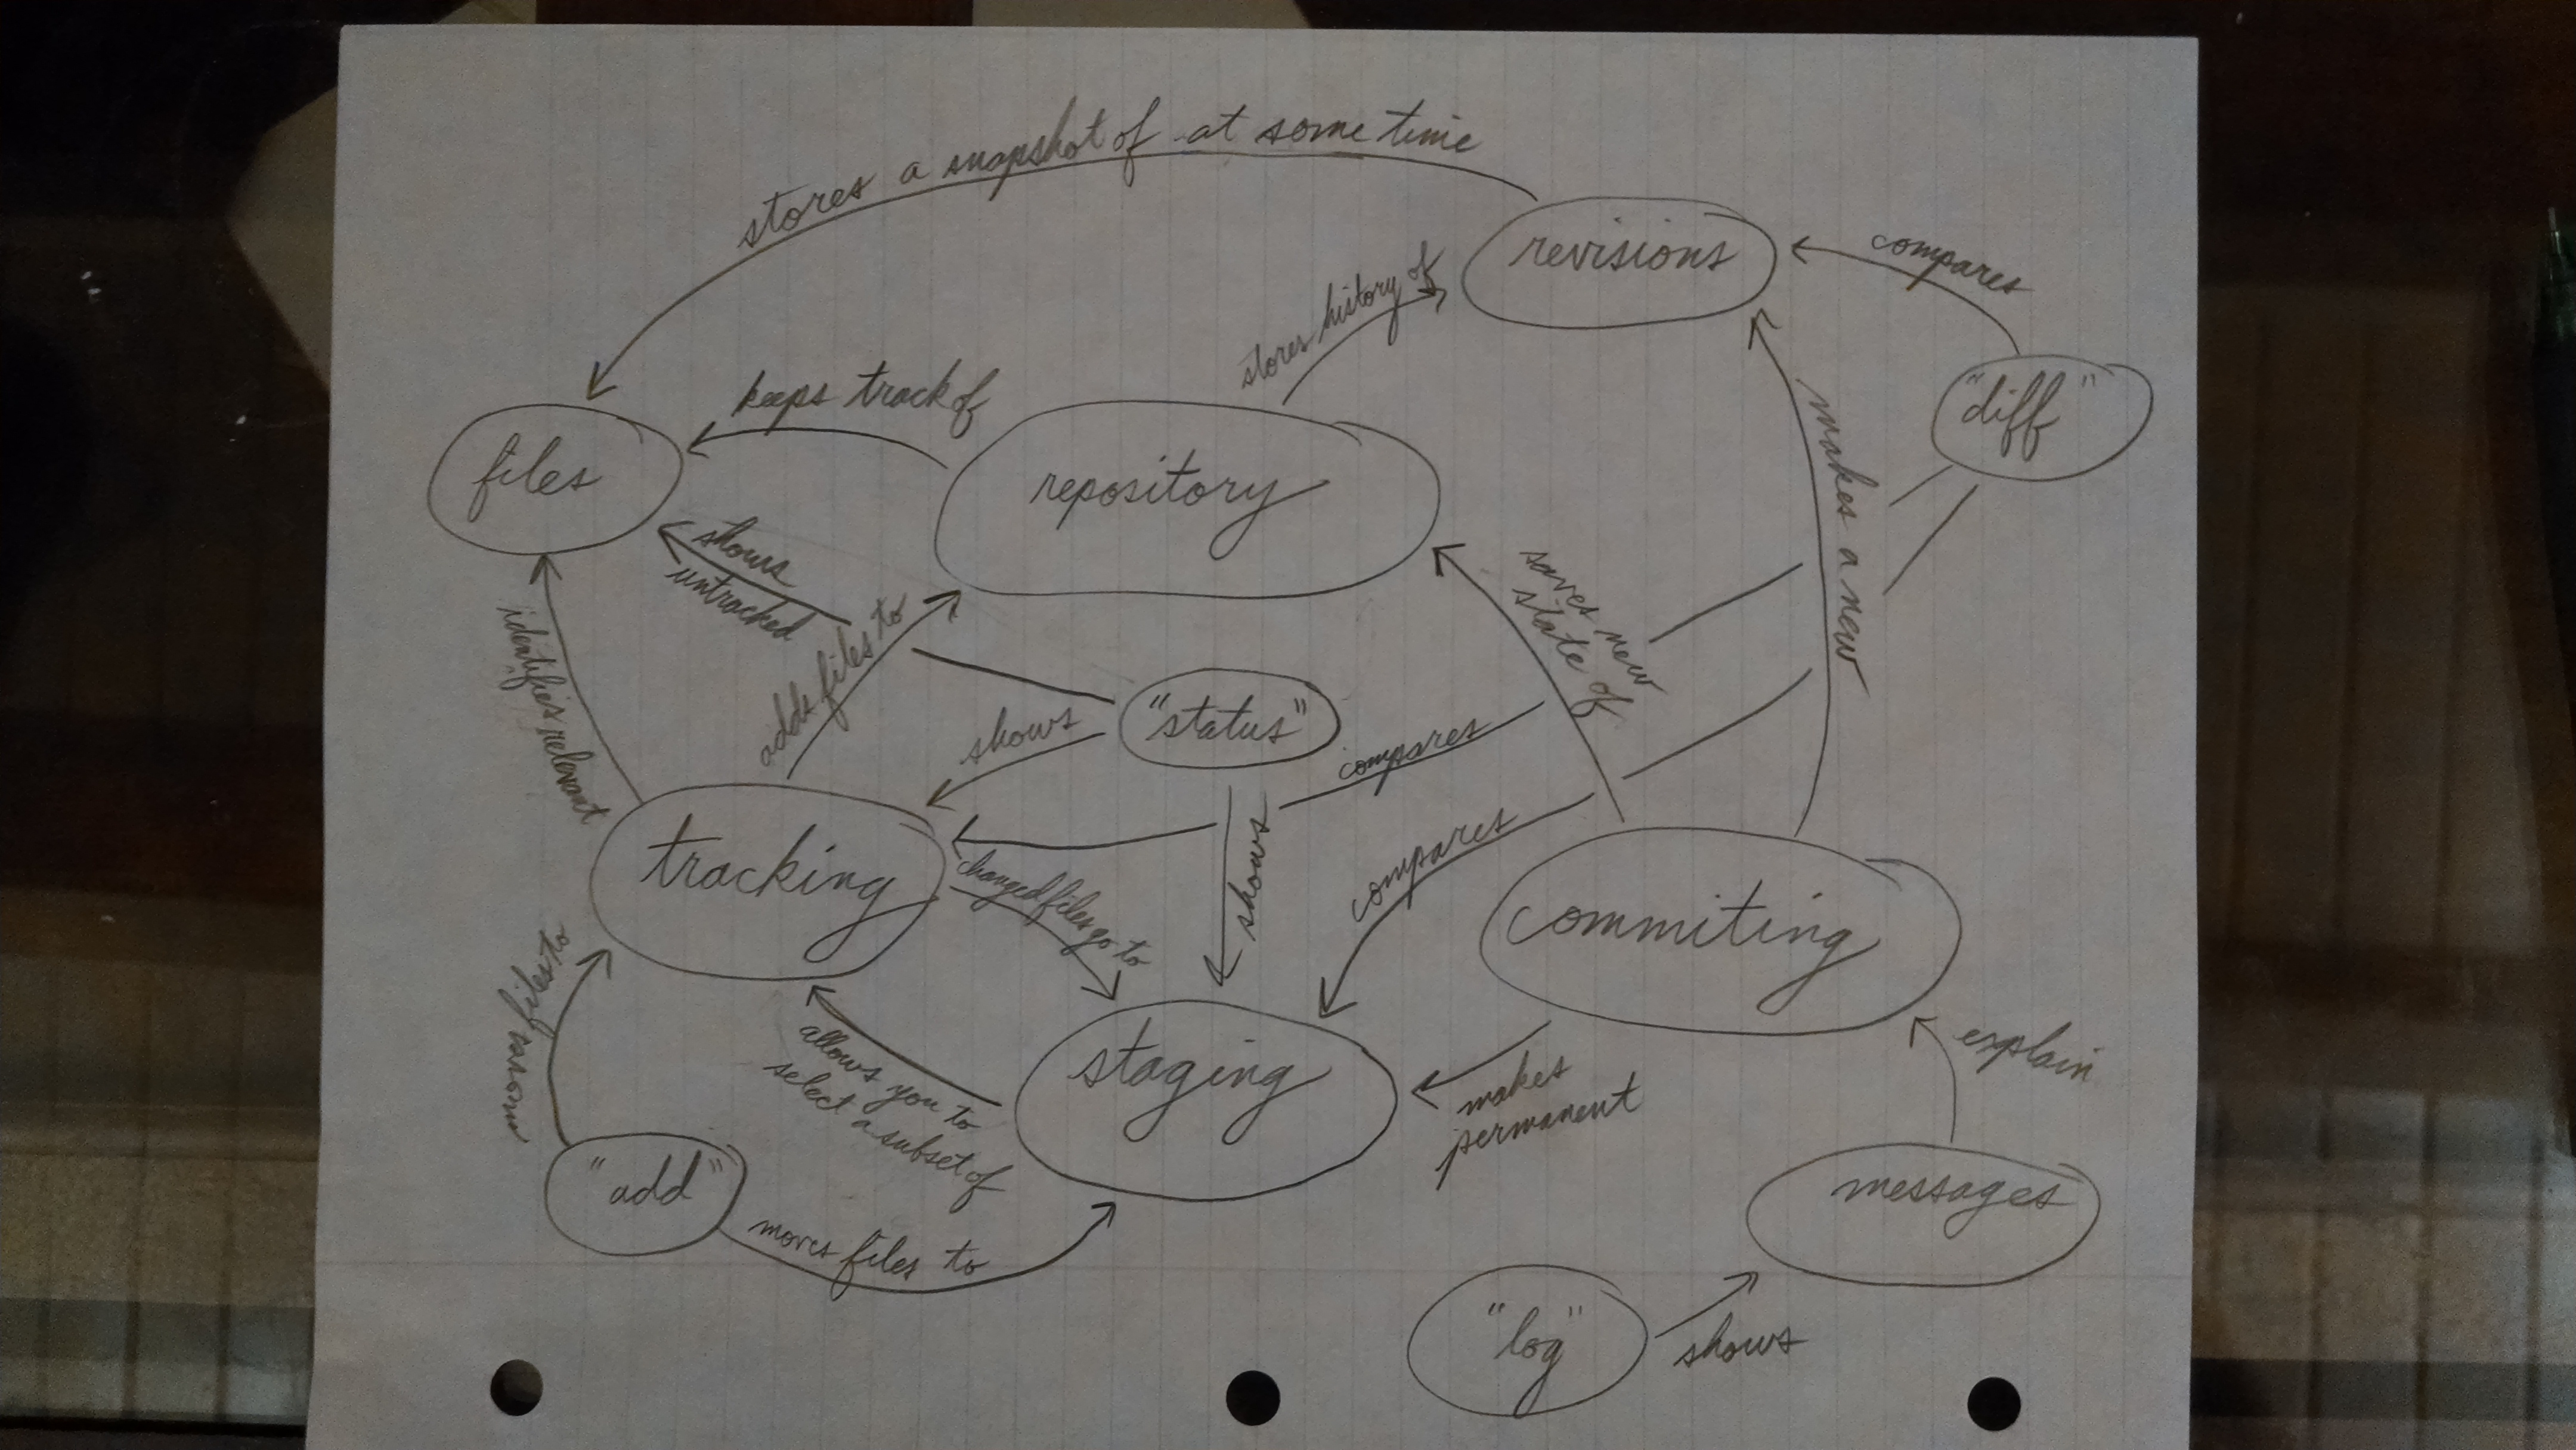 stores a snapshot of at some time
revisions
compares
stores history of
"diff"
keeps track of
files
repository
makes a new
shows
untracked
saves new
state of
adds files to
identifies relevant
"status"
shows
compares
tracking
changed files go to
shows
compares
commiting
moves files to
staging
allows you to
select a subset of
makes
permanent
explain
"add"
moves files to
messages
"log"
shows